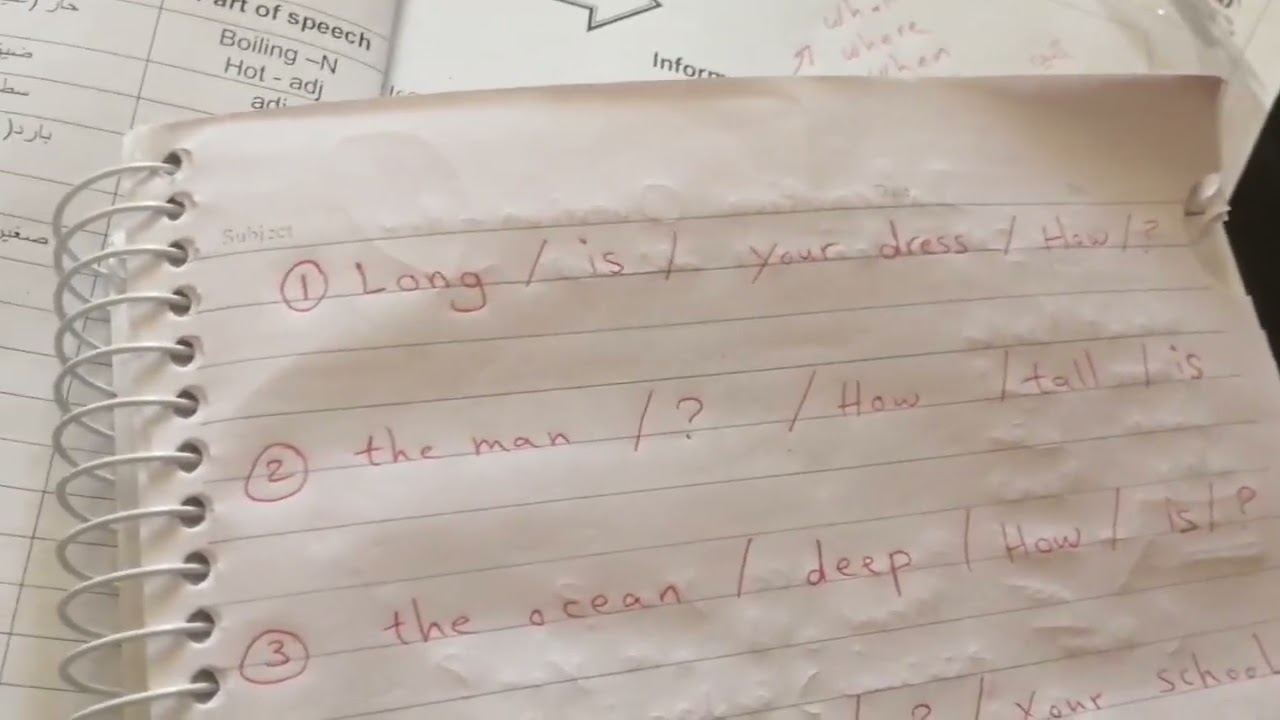 art of speech
Boiling –N
Hot - adj
adj
حار
بارد(
صغير
Inform
where
when
Subject
① Long / is / your dress / How / ?
② the man / ? / How / tall / is
③ the ocean / deep / How / is / ?
? / your school